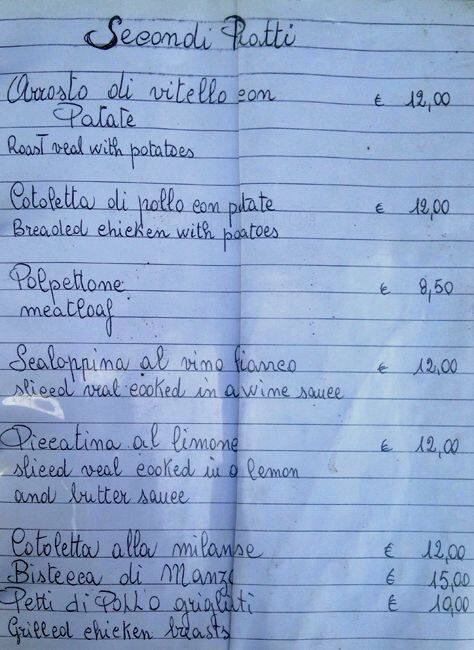 Secondi Piatti
Arrosto di vitello con € 12,00
Patate
Roast veal with potatoes
Cotoletta di pollo con patate € 12,00
Breaded chicken with poatoes
Polpettone € 8,50
meatloaf
Scaloppina al vino bianco € 12,00
sliced veal cooked in a wine sauce
Piccatina al limone € 12,00
sliced veal cooked in a lemon
and butter sauce
Cotoletta alla milanse € 12,00
Bistecca di Manzo € 15,00
Petti di POLLO grigliati € 10,00
Grilled chicken breasts